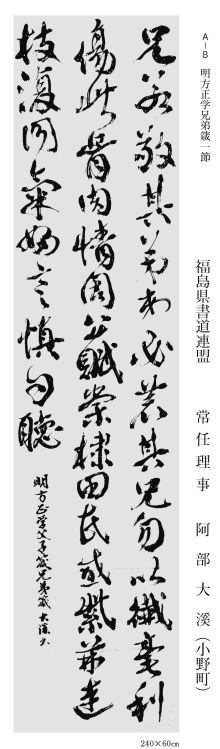 A-8 明方正学兄弟箴一節
福島県書道連盟 常任理事 阿部大溪(小野町)
兄敬其弟弟必恭其兄勿以纖毫利
傷此骨肉情周公賦棠棣田氏感紫荊連
枝復同氣婦言慎勿聽
明方正学父子箴兄弟箴 大溪
240×60㎝